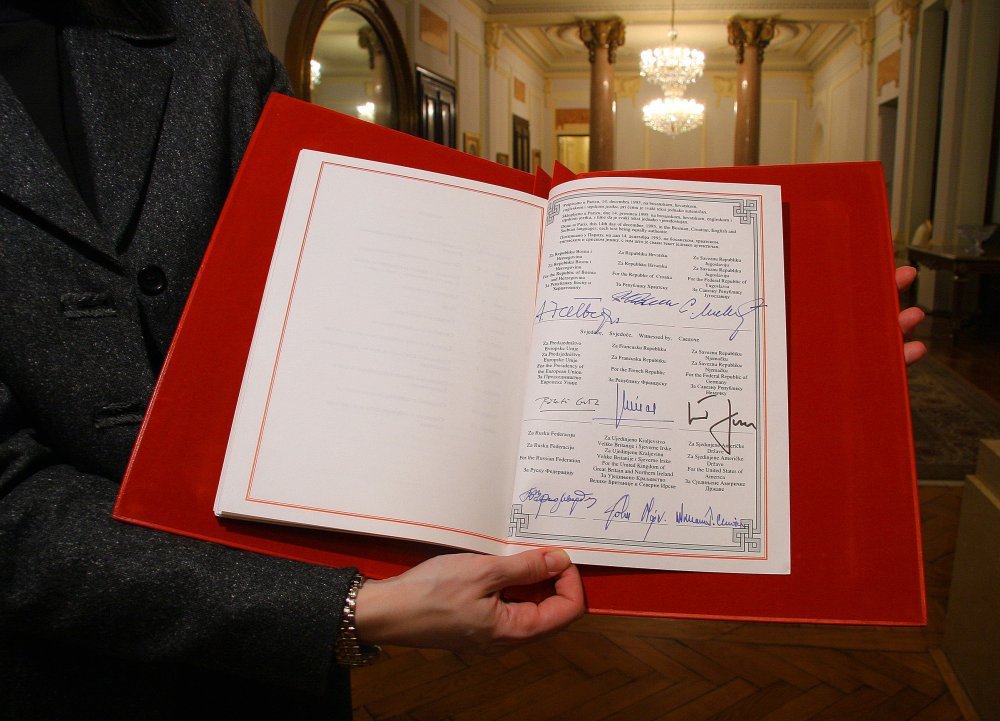 Potpisano u Parizu, 14. decembra 1995, na bosanskom, hrvatskom,
engleskom i srpskom jeziku, pri čemu je svaki tekst jednako autentičan.
Sklopljeno u Parizu, dne 14. prosinca 1995, na bosanskom, hrvatskom, engleskom i
srpskom jeziku, s time da je svaki tekst jednako vjerodostojan.
Done in Paris, this 14th day of December, 1995, in the Bosnian, Croatian, English and
Serbian languages, each text being equally authentic.
Потписано у Паризу, на дан 14. децембра 1995, на босанском, хрватском,
енглеском и српском језику, с тим што је сваки текст једнако аутентичан.
Za Republiku Bosnu i
Hercegovinu
Za Republiku Bosnu i
Hercegovinu
For the Republic of Bosnia
and Herzegovina
За Републику Босну и
Херцеговину
Za Republiku Hrvatsku
Za Republiku Hrvatsku
For the Republic of Croatia
За Републику Хрватску
Za Saveznu Republiku
Jugoslaviju
Za Saveznu Republiku
Jugoslaviju
For the Federal Republic of
Yugoslavia
За Савезну Републику
Југославију
Svjedoče, Svjedoče, Witnessed by, Сведоче
Za Predsjedništvo
Evropske Unije
Za Predsjedništvo
Europske Unije
For the Presidency of
the European Union
За Председништво
Европске Уније
Za Francusku Republiku
Za Francusku Republiku
For the French Republic
За Републику Француску
Za Saveznu Republiku
Njemačku
Za Saveznu Republiku
Njemačku
For the Federal Republic of
Germany
За Савезну Републику
Немачку
Za Rusku Federaciju
Za Rusku Federaciju
For the Russian Federation
За Руску Федерацију
Za Ujedinjeno Kraljevstvo
Velike Britanije i Sjeverne Irske
Za Ujedinjenu Kraljevinu
Velike Britanije i Sjeverne Irske
For the United Kingdom of
Great Britain and Northern Ireland
За Уједињено Краљевство
Велике Британије и Северне Ирске
Za Sjedinjene Američke
Države
Za Sjedinjene Američke
Države
For the United States of
America
За Сједињене Америчке
Државе
John